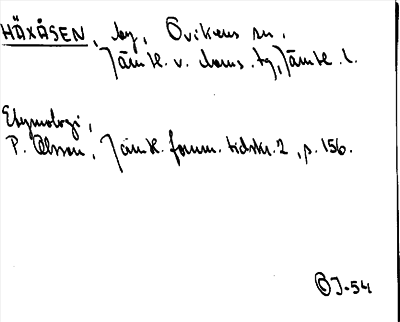 HÄXÅSEN, by, Ovikens sn.
Jämtl. v. doms. tg, Jämtl. l.
Etymologi,
P. Olsson, Jämtl. fornm. tidskr. 2, p. 156.
OJ-54